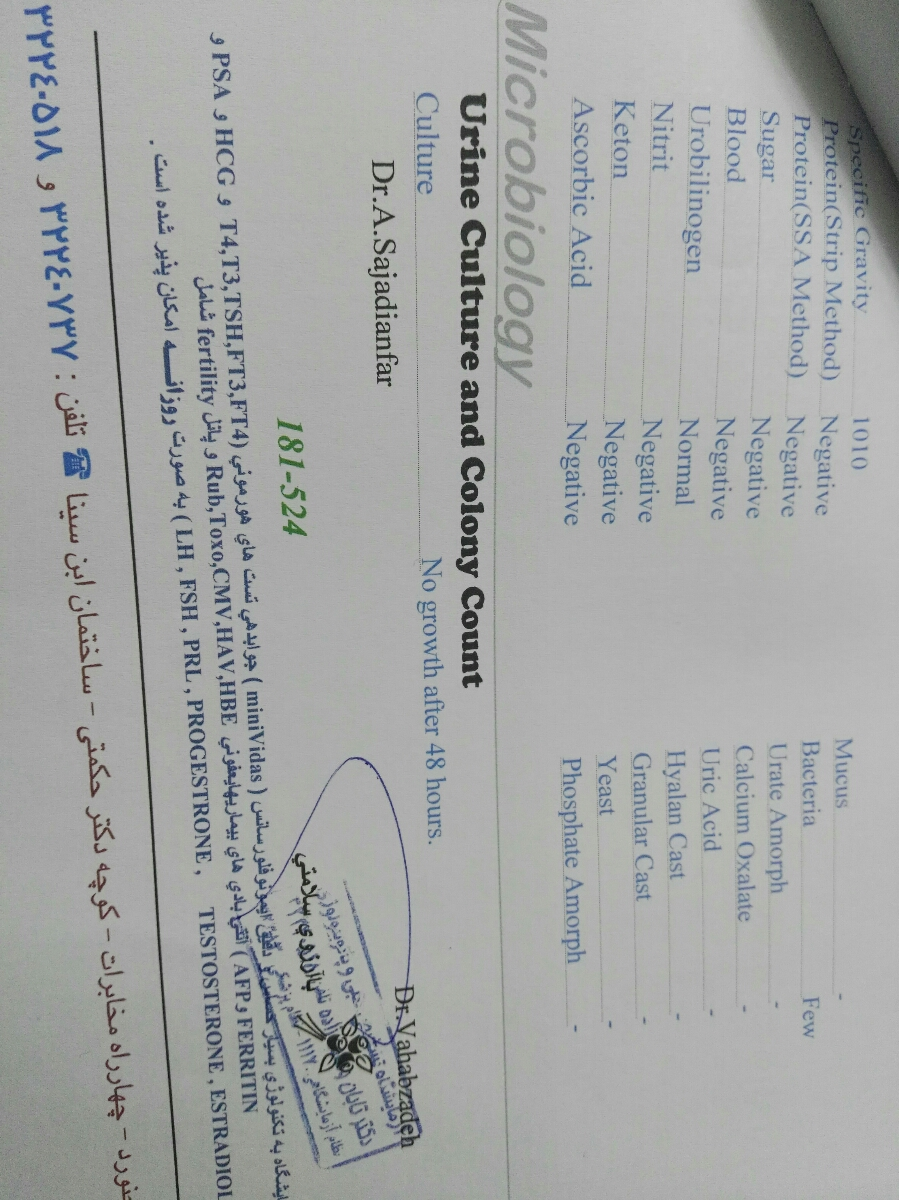 Specific Gravity 1010
Protein(Strip Method) Negative
Protein(SSA Method) Negative
Sugar Negative
Blood Negative
Urobilinogen Normal
Nitrit Negative
Keton Negative
Ascorbic Acid Negative
Mucus -
Bacteria Few
Urate Amorph -
Calcium Oxalate -
Uric Acid -
Hyalan Cast -
Granular Cast -
Yeast -
Phosphate Amorph -
Microbiology
Urine Culture and Colony Count
Culture No growth after 48 hours.
Dr.A.Sajadianfar
Dr.Vahabzadeh
181-524
به تکنولوژی بسیار دقیق ایمونوفلورسانس ( miniVidas ) جوابدهی تست های هورمونی (T4,T3,TSH,FT3,FT4 و HCG و PSA و
AFP و FERRITIN ) آنتی بادی های بیماریهای عفونی Rub,Toxo,CMV,HAV,HBE و پانل fertility شامل
( LH , FSH , PRL , PROGESTRONE , TESTOSTERONE , ESTRADIOL به صورت روزانه امکان پذیر شده است .
چهارراه مخابرات - کوچه دکتر حکمتی - ساختمان ابن سینا ☎ تلفن : ۳۲۲۴۰۷۳۷ و ۳۲۲۴۰۵۱۸